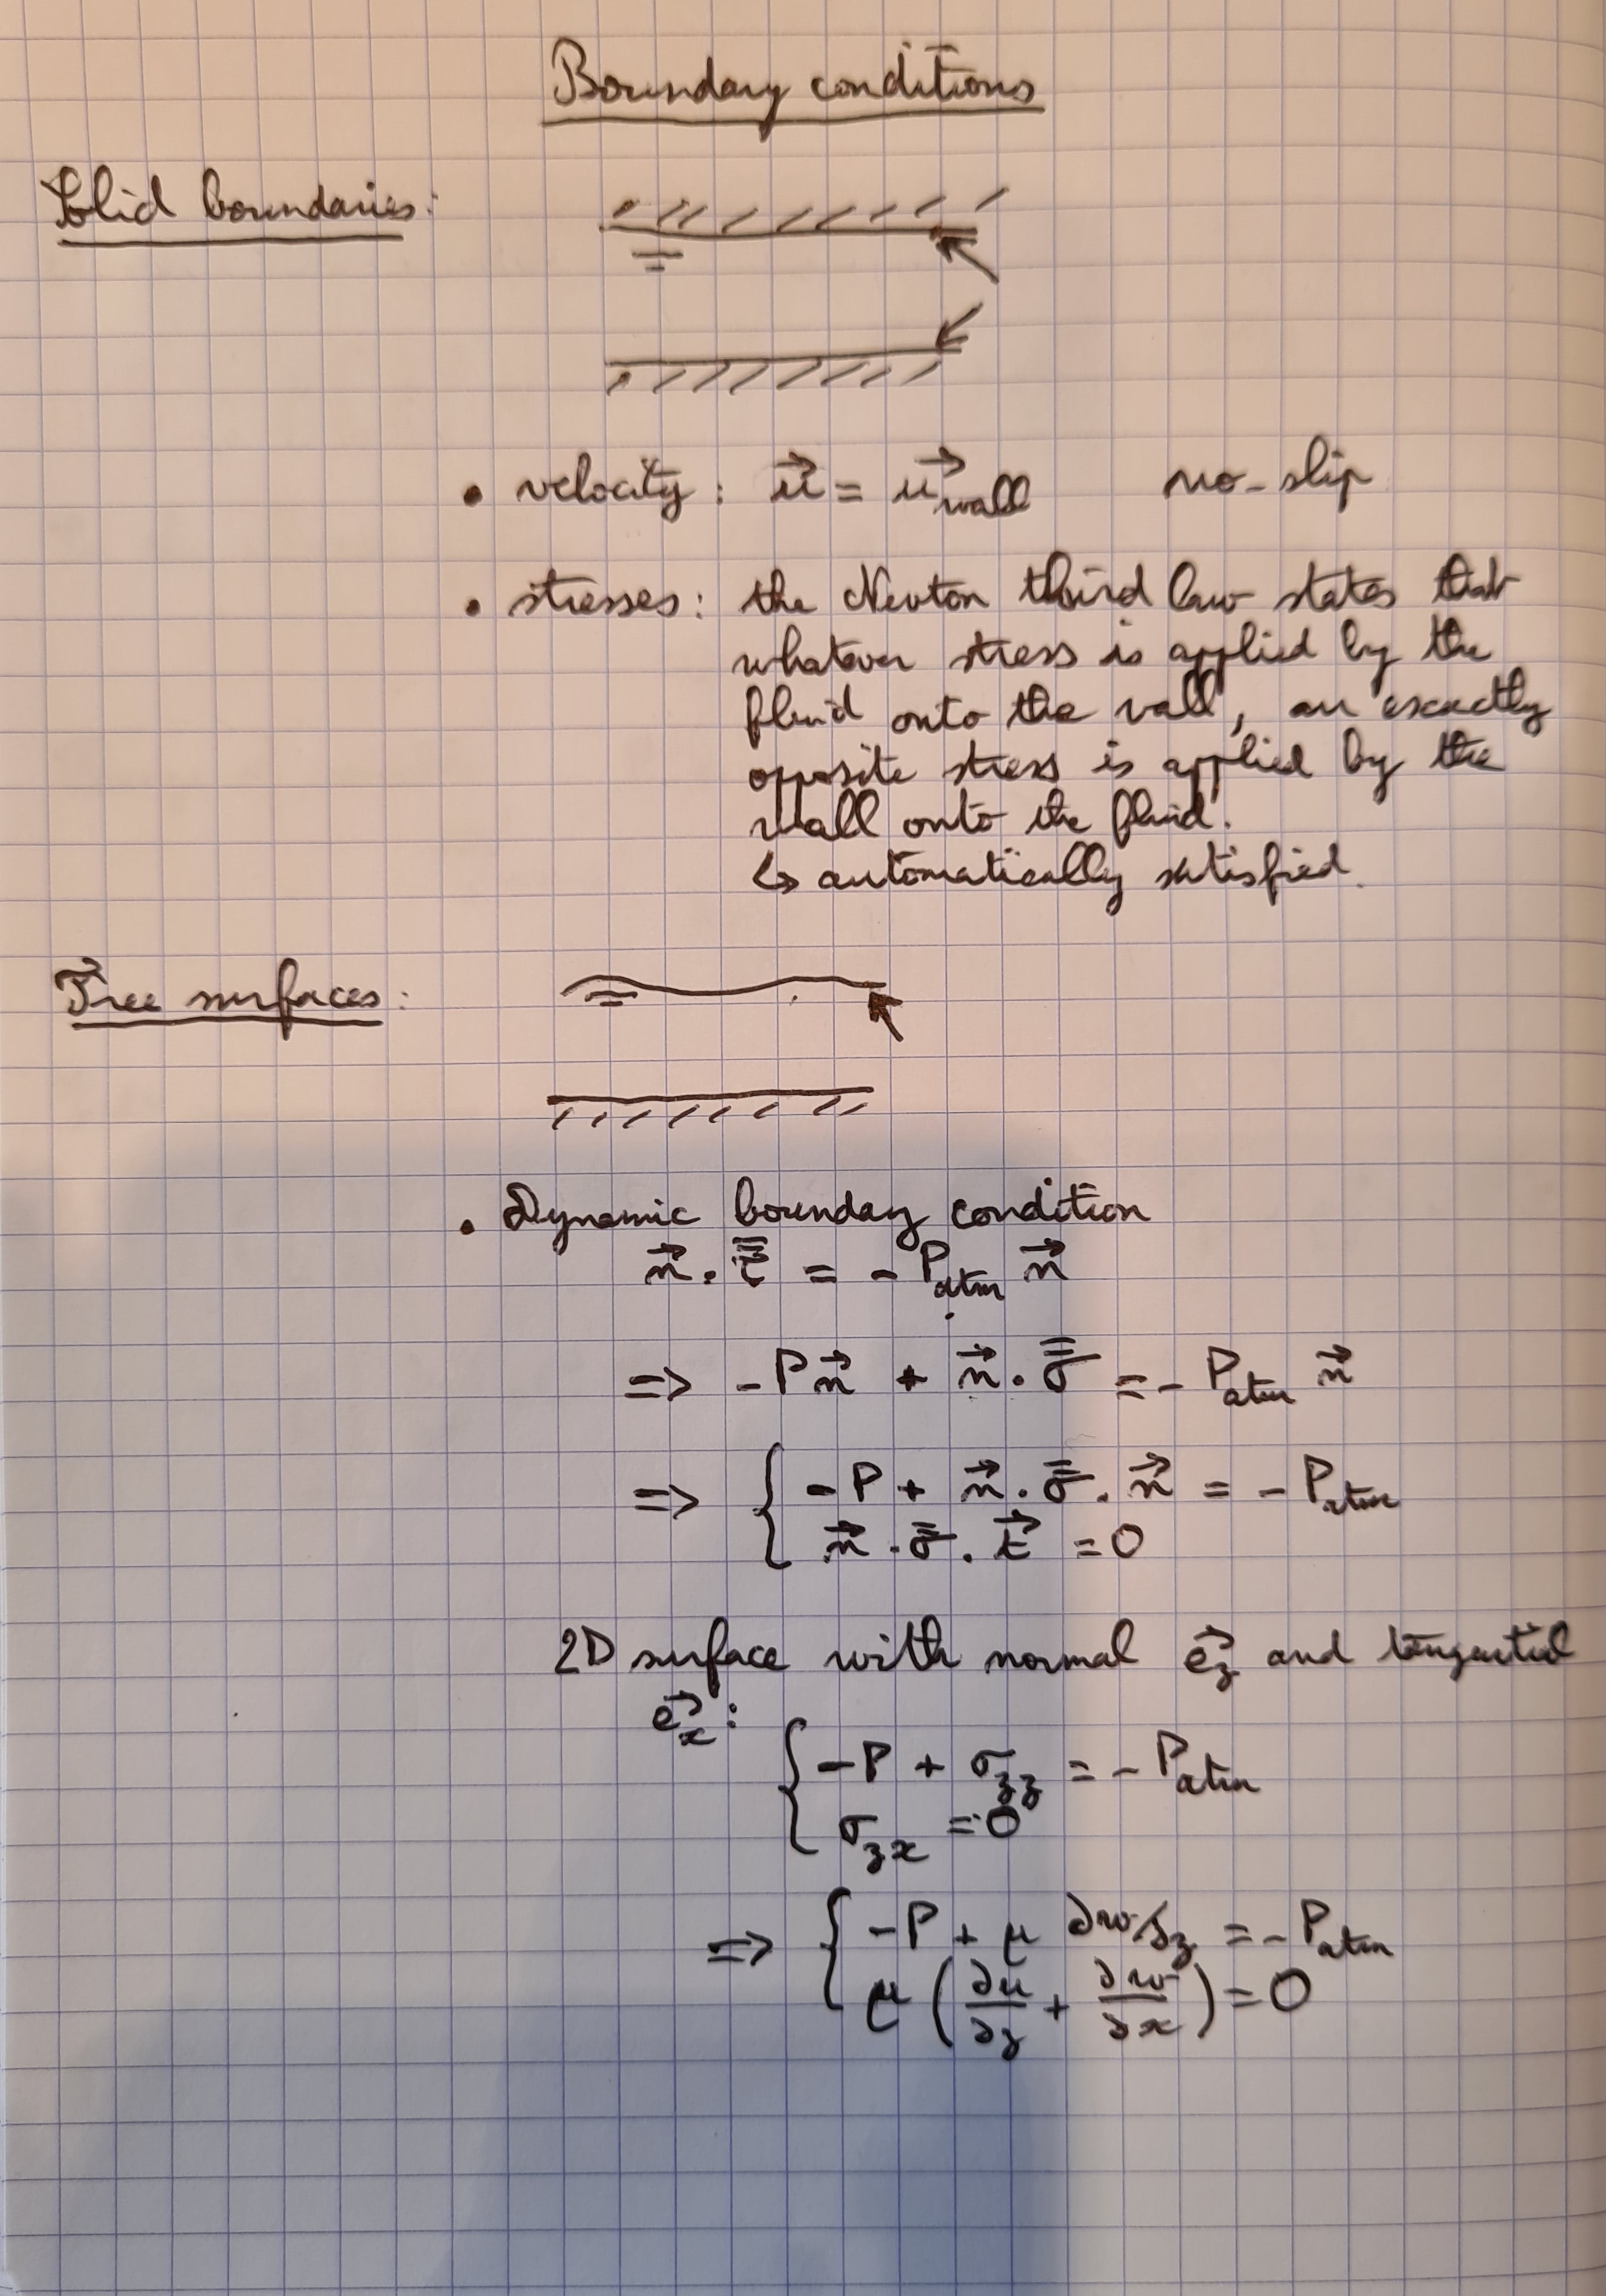 Boundary conditions
Solid boundaries:
• velocity: $\vec{u} = \vec{u}_{wall}$ no-slip
• stresses: the Newton third law states that
whatever stress is applied by the
fluid onto the wall, an exactly
opposite stress is applied by the
wall onto the fluid.
↳ automatically satisfied.
Free surfaces:
• Dynamic boundary condition
$\vec{n} \cdot \bar{\bar{\tau}} = -P_{atm} \vec{n}$
$\Rightarrow -P\vec{n} + \vec{n} \cdot \bar{\bar{\sigma}} = -P_{atm} \vec{n}$
$\Rightarrow \begin{cases} -P + \vec{n} \cdot \bar{\bar{\sigma}} \cdot \vec{n} = -P_{atm} \\ \vec{n} \cdot \bar{\bar{\sigma}} \cdot \vec{t} = 0 \end{cases}$
2D surface with normal $\vec{e_z}$ and tangential
$\vec{e_x}$:
$\begin{cases} -P + \sigma_{zz} = -P_{atm} \\ \sigma_{zx} = 0 \end{cases}$
$\Rightarrow \begin{cases} -P + \mu \, \partial w / \partial z = -P_{atm} \\ \mu \left( \frac{\partial u}{\partial z} + \frac{\partial w}{\partial x} \right) = 0 \end{cases}$